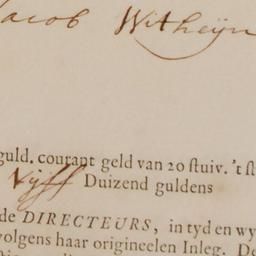 Jacob Witheijn
guld. courant geld van 20 stuiv. 't st
Vijff Duizend guldens
de DIRECTEURS, in tyd en wy
volgens haar origineelen Inleg. De